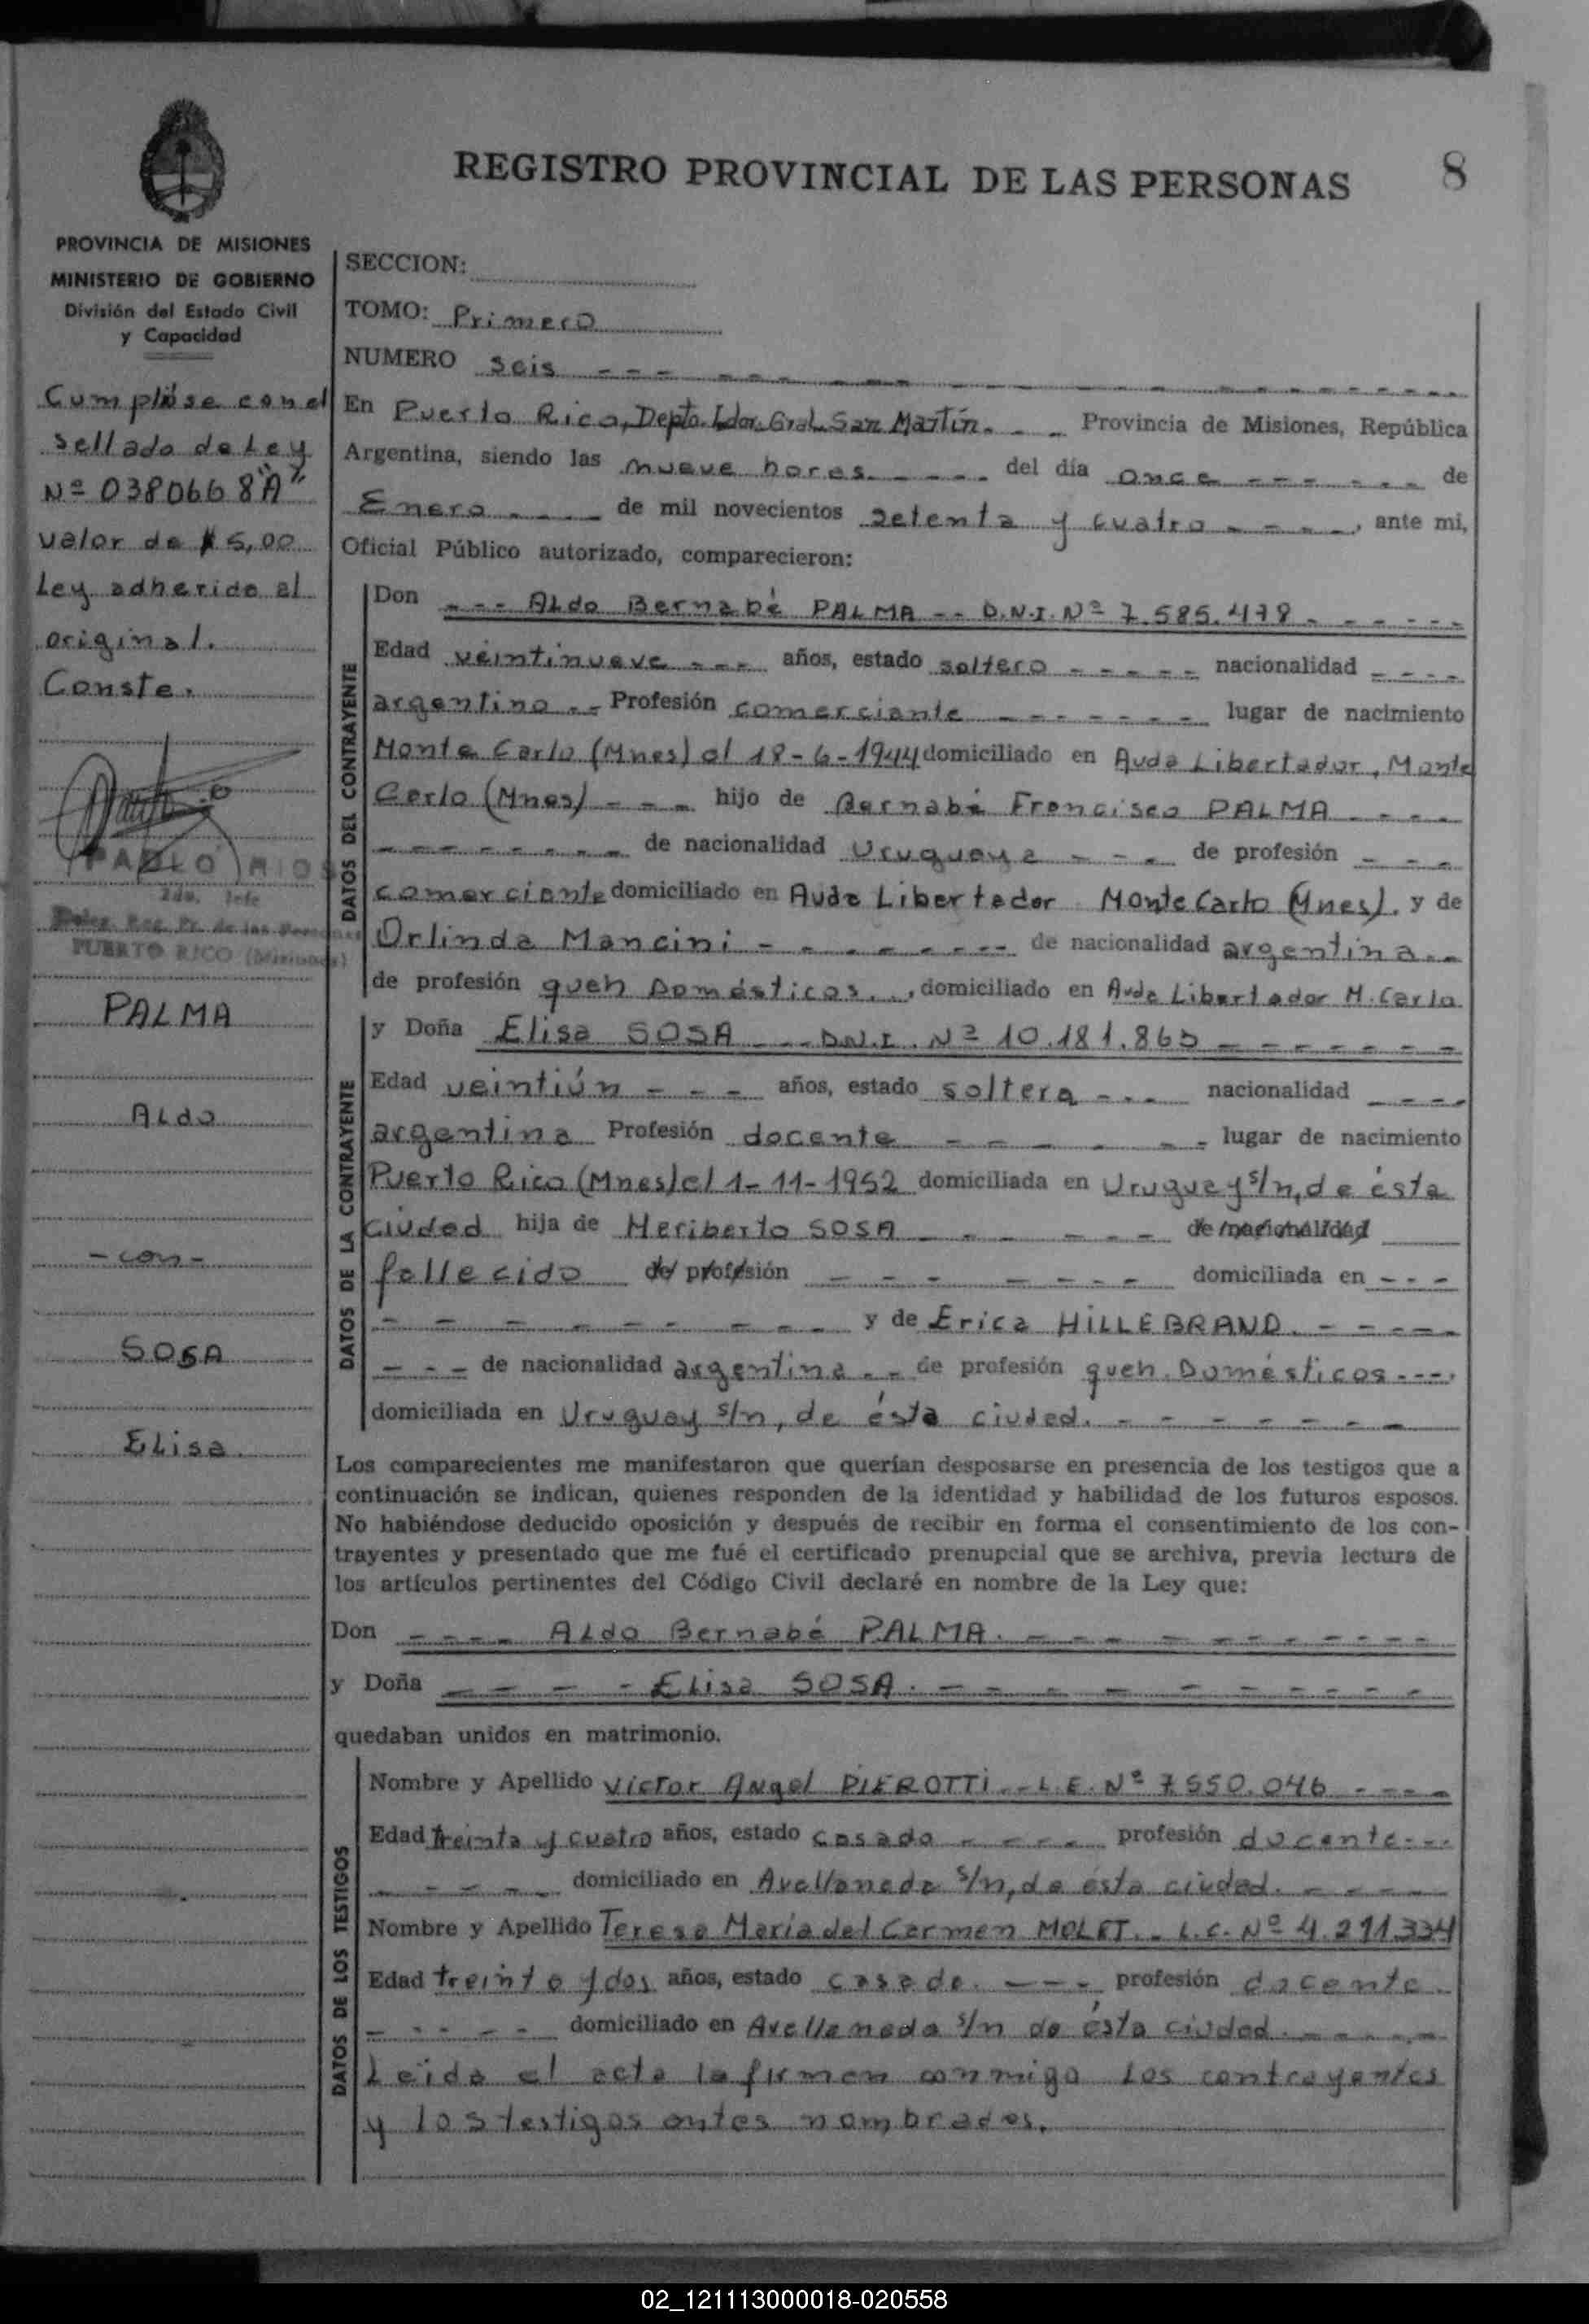 REGISTRO PROVINCIAL DE LAS PERSONAS
8
PROVINCIA DE MISIONES
MINISTERIO DE GOBIERNO
División del Estado Civil
y Capacidad
Cumpláse con el
sellado de Ley
Nº 0380668"A"
valor de $ 5,00
Ley adherido al
original.
Conste.
PABLO RIOS
2do. Jefe
Deleg. Reg. Pr. de las Personas
PUERTO RICO (Misiones)
PALMA
ALdo
- con -
SOSA
ELisa
SECCION:
TOMO: Primero
NUMERO seis - - -
En Puerto Rico, Depto. Ldor. Gral. San Martín. - - Provincia de Misiones, República
Argentina, siendo las nueve horas. - - - - del día once - - - - - - de
Enero - - - - de mil novecientos setenta y cuatro - - - -, ante mi,
Oficial Público autorizado, comparecieron:
DATOS DEL CONTRAYENTE
Don - - - ALdo Bernabé PALMA - - D.N.I. Nº 7.585.478 - - - - - -
Edad veintinueve - - - años, estado soltero - - - - - nacionalidad - - - -
argentino - - Profesión comerciante - - - - - - - lugar de nacimiento
Monte Carlo (Mnes) el 18-6-1944 domiciliado en Avda Libertador, Monte
Carlo (Mnes) - - - hijo de Bernabé Francisco PALMA - - - -
- - - - - - - - de nacionalidad Uruguaya - - - - de profesión - - -
comerciante domiciliado en Avda Libertador Monte Carlo (Mnes). y de
Orlinda Mancini - - - - - - - - de nacionalidad argentina - -
de profesión queh Domésticos. . , domiciliado en Avda Libertador M. Carlo
DATOS DE LA CONTRAYENTE
y Doña Elisa SOSA - - - D.N.I. Nº 10.181.865 - - - - - - -
Edad veintiún - - - años, estado soltera - - - nacionalidad - - - -
argentina Profesión docente - - - - - - - lugar de nacimiento
Puerto Rico (Mnes) el 1-11-1952 domiciliada en Uruguay s/n, de ésta
ciudad hija de Heriberto SOSA - - - - - - - de nacionalidad
fallecido de profesión - - - - - - - domiciliada en - - -
- - - - - - - - - y de Erica HILLEBRAND. - - - - -
- - - de nacionalidad argentina - - de profesión queh. Domésticos - - -.
domiciliada en Uruguay s/n, de ésta ciudad. - - - - - - -
Los comparecientes me manifestaron que querían desposarse en presencia de los testigos que a
continuación se indican, quienes responden de la identidad y habilidad de los futuros esposos.
No habiéndose deducido oposición y después de recibir en forma el consentimiento de los con-
trayentes y presentado que me fué el certificado prenupcial que se archiva, previa lectura de
los artículos pertinentes del Código Civil declaré en nombre de la Ley que:
Don - - - - ALdo Bernabé PALMA. - - - - - - - - - -
y Doña - - - - ELisa SOSA. - - - - - - - - - -
quedaban unidos en matrimonio.
DATOS DE LOS TESTIGOS
Nombre y Apellido Victor Angel PIEROTTI - - L.E. Nº 7.550.046 - - - -
Edad treinta y cuatro años, estado casado - - - - - profesión docente - - -
- - - - - domiciliado en Avellaneda s/n, de ésta ciudad. - - - -
Nombre y Apellido Teresa María del Carmen MOLET. - L.C. Nº 4.291.334
Edad treinta y dos años, estado casada. - - - - profesión docente.
- - - - - domiciliado en Avellaneda s/n de ésta ciudad. - - - - -
Leída el acta la firman conmigo Los contrayentes
y los testigos antes nombrados.
02_121113000018-020558